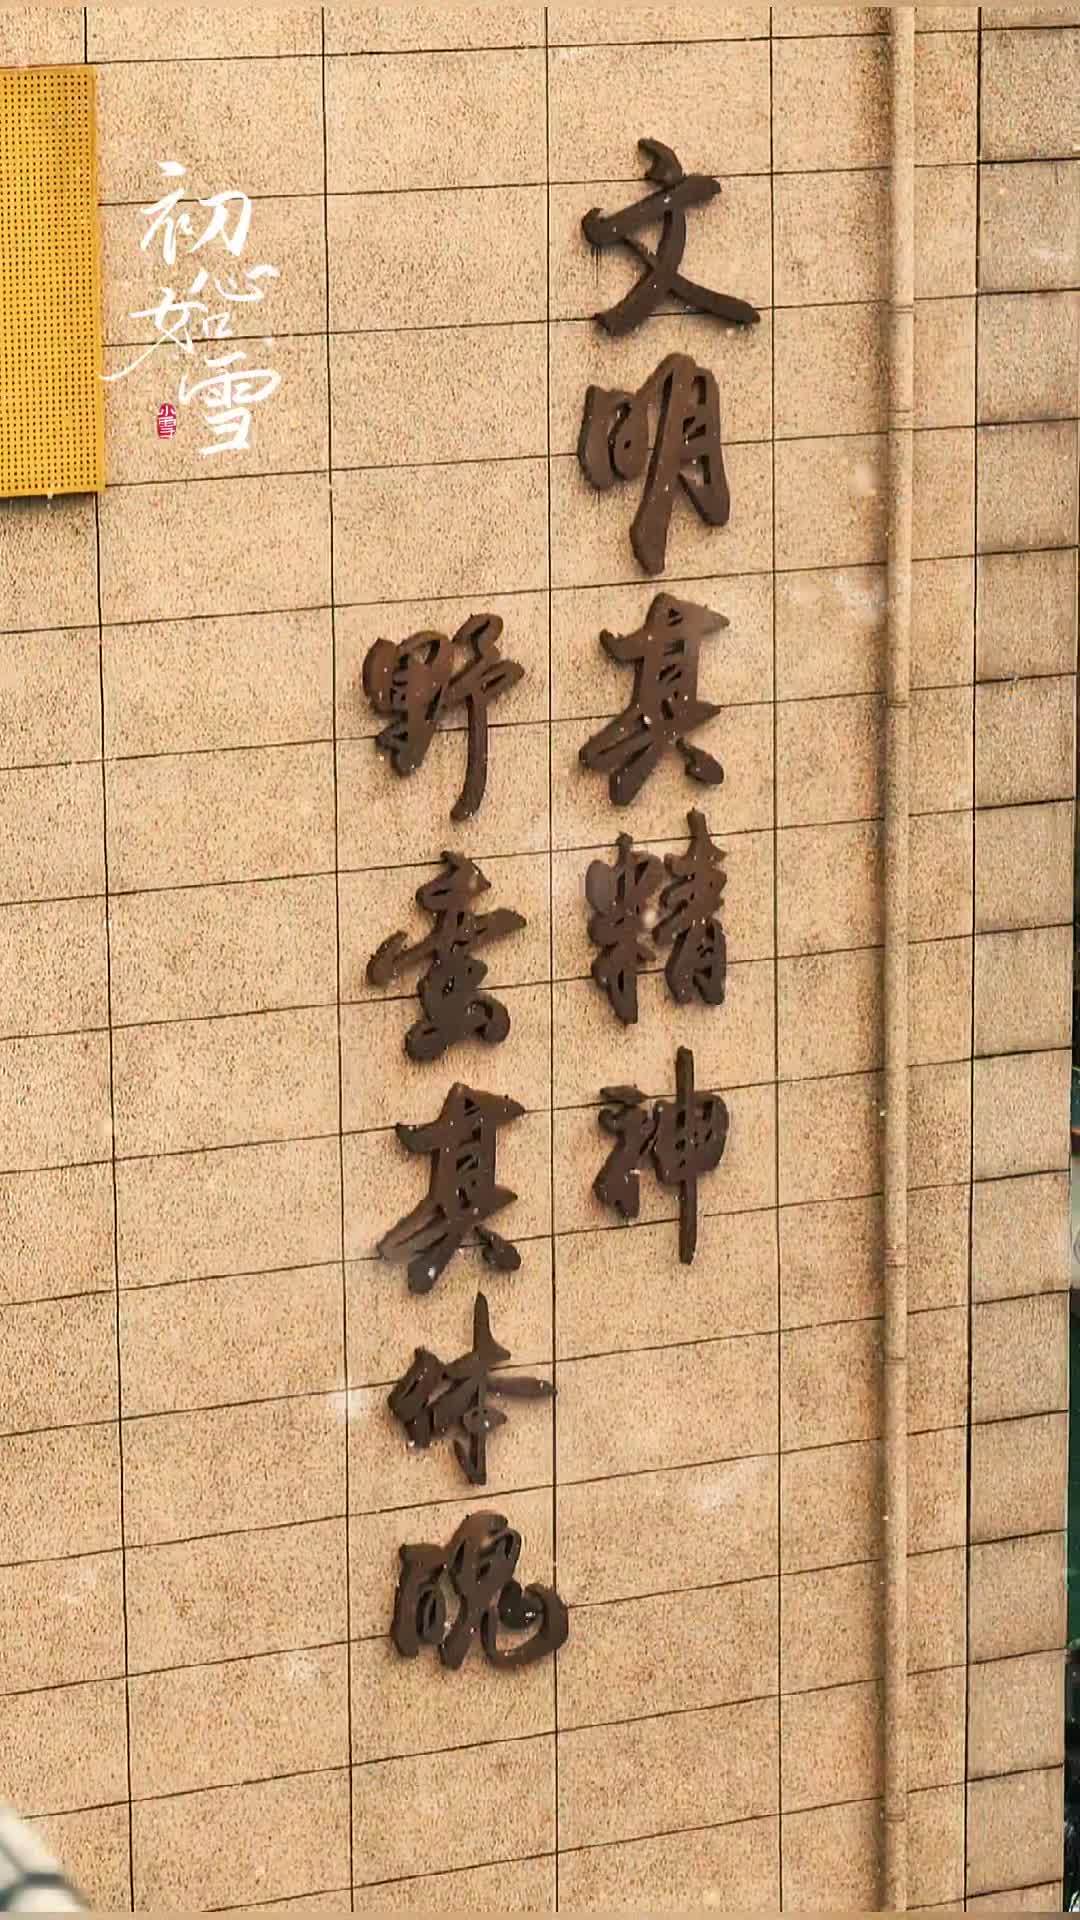 文明其精神
野蛮其体魄
初心如雪
小雪